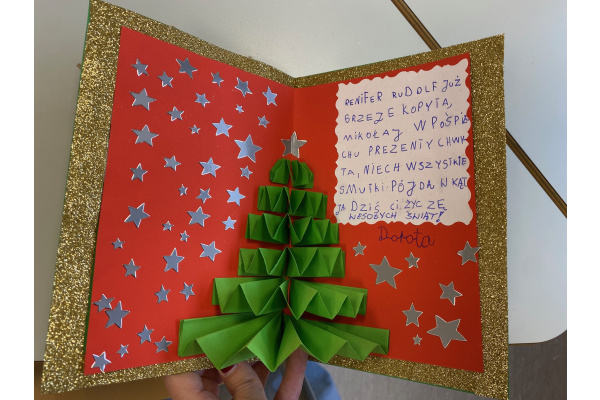 RENIFER RUDOLF JUŻ
GRZEJE KOPYTA,
MIKOŁAJ W POŚPIE
CHU PREZENTY CHWY
TA, NIECH WSZYSTKIE
SMUTKI PÓJDĄ W KĄT
JA DZIŚ CI ŻYCZĘ
WESOŁYCH ŚWIĄT!
Dorota